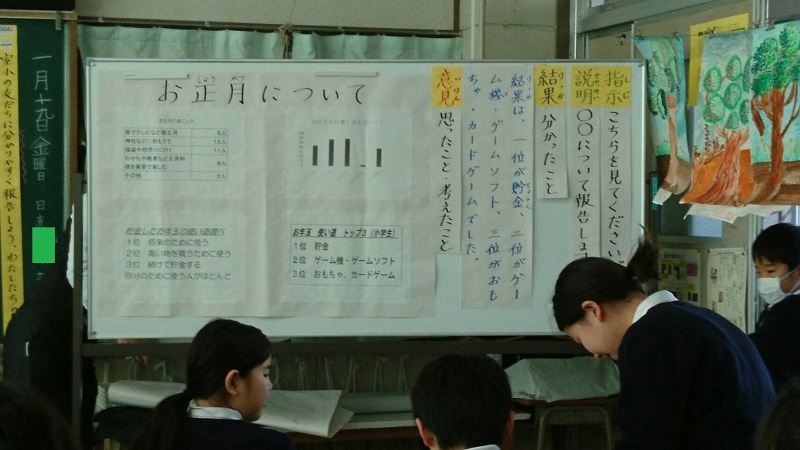 お正月について
家でテレビなど寝正月 5人
神社などに初もうで 12人
2人
貯金したお年玉の使い道調べ
1位 将来のために使う
2位 高い物を買うために使う
3位 続けて貯金する
自分のために使う人がほとんど
お年玉 使い道 トップ3(小学生)
1位 貯金
2位 ゲーム機・ゲームソフト
3位 おもちゃ、カードゲーム
指示 こちらを見てください。
説明 〇〇について報告します
結果 分かったこと
結果は、一位が貯金、二位がゲー
ム機・ゲームソフト、三位がおも
ちゃ、カードゲームでした。
意見 思ったこと・考えたこと
一月十九日金曜日 日直
小の友だちに分かりやすく報告しよう、わたしたちの